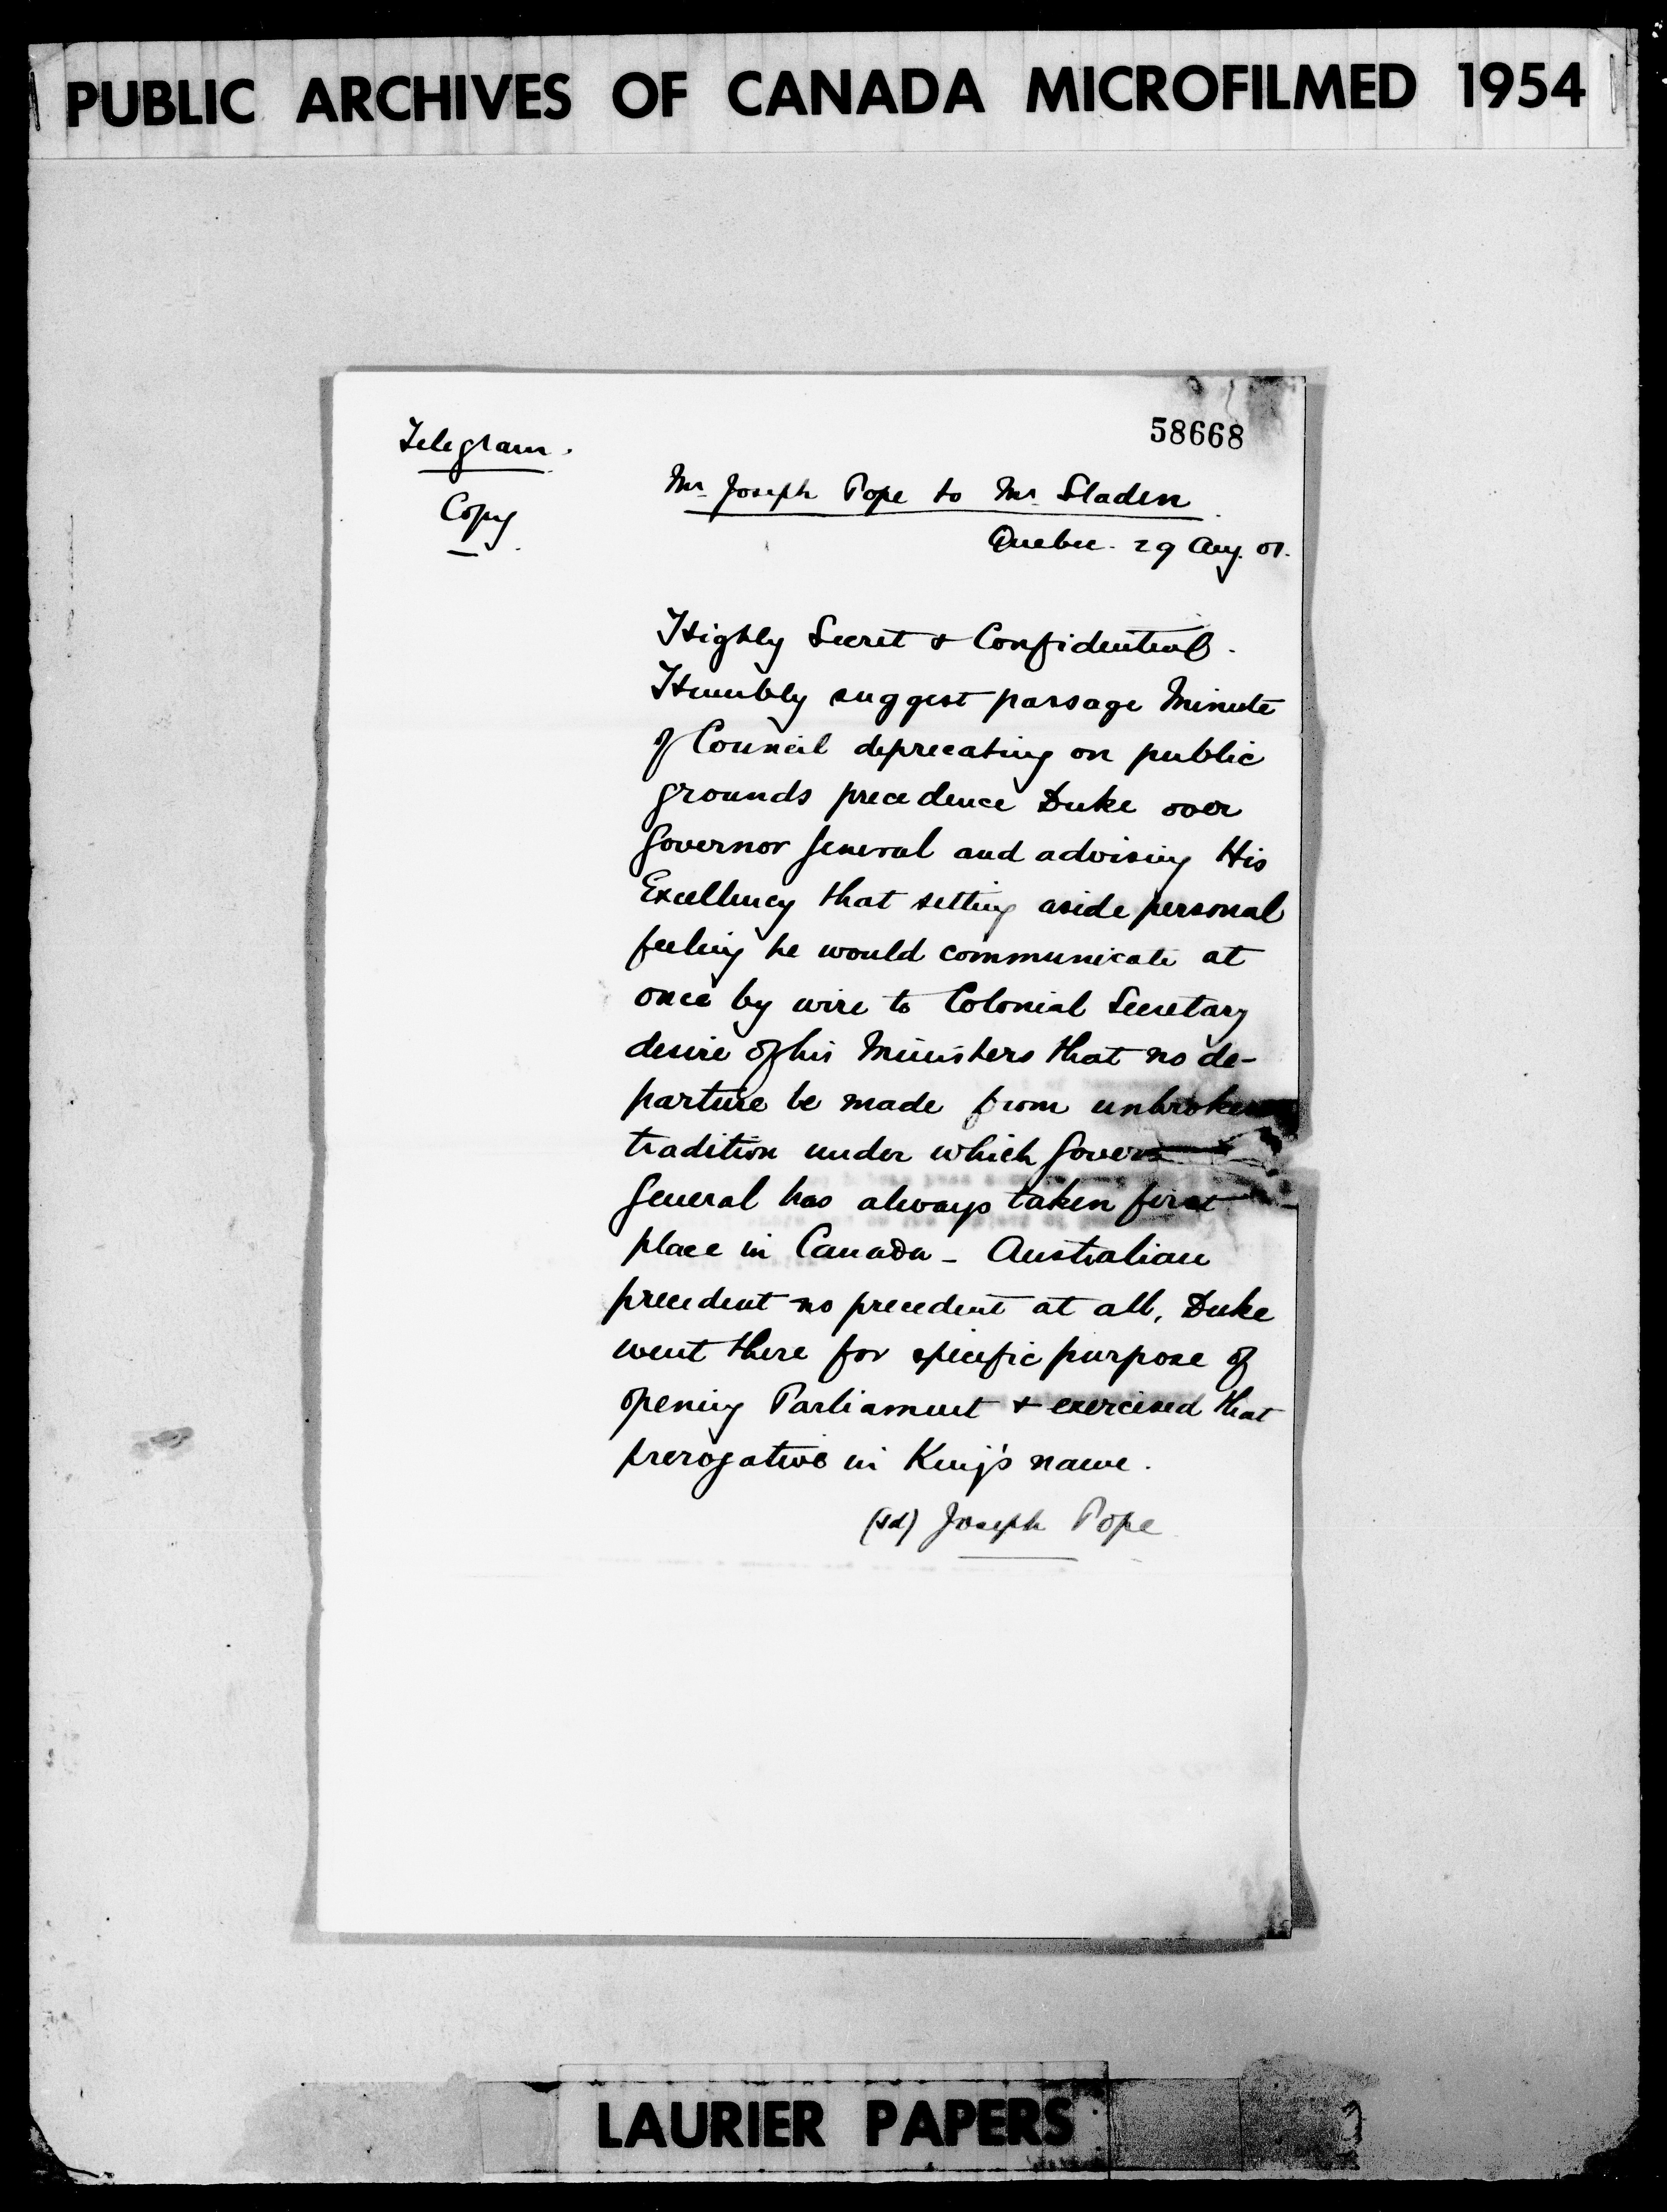 PUBLIC ARCHIVES OF CANADA MICROFILMED 1954
58668
Telegram.
Copy
Mr Joseph Pope to Mr Sladen
Quebec. 29 Aug. 01.
Highly Secret & Confidential.
Humbly suggest passage Minute
of Council deprecating on public
grounds precedence Duke over
Governor General and advising His
Excellency that setting aside personal
feeling he would communicate at
once by wire to Colonial Secretary
desire of his Ministers that no de-
parture be made from unbroken
tradition under which Govern
General has always taken first
place in Canada - Australian
precedent no precedent at all, Duke
went there for specific purpose of
opening Parliament & exercised that
prerogative in King's name.
(sd) Joseph Pope
LAURIER PAPERS